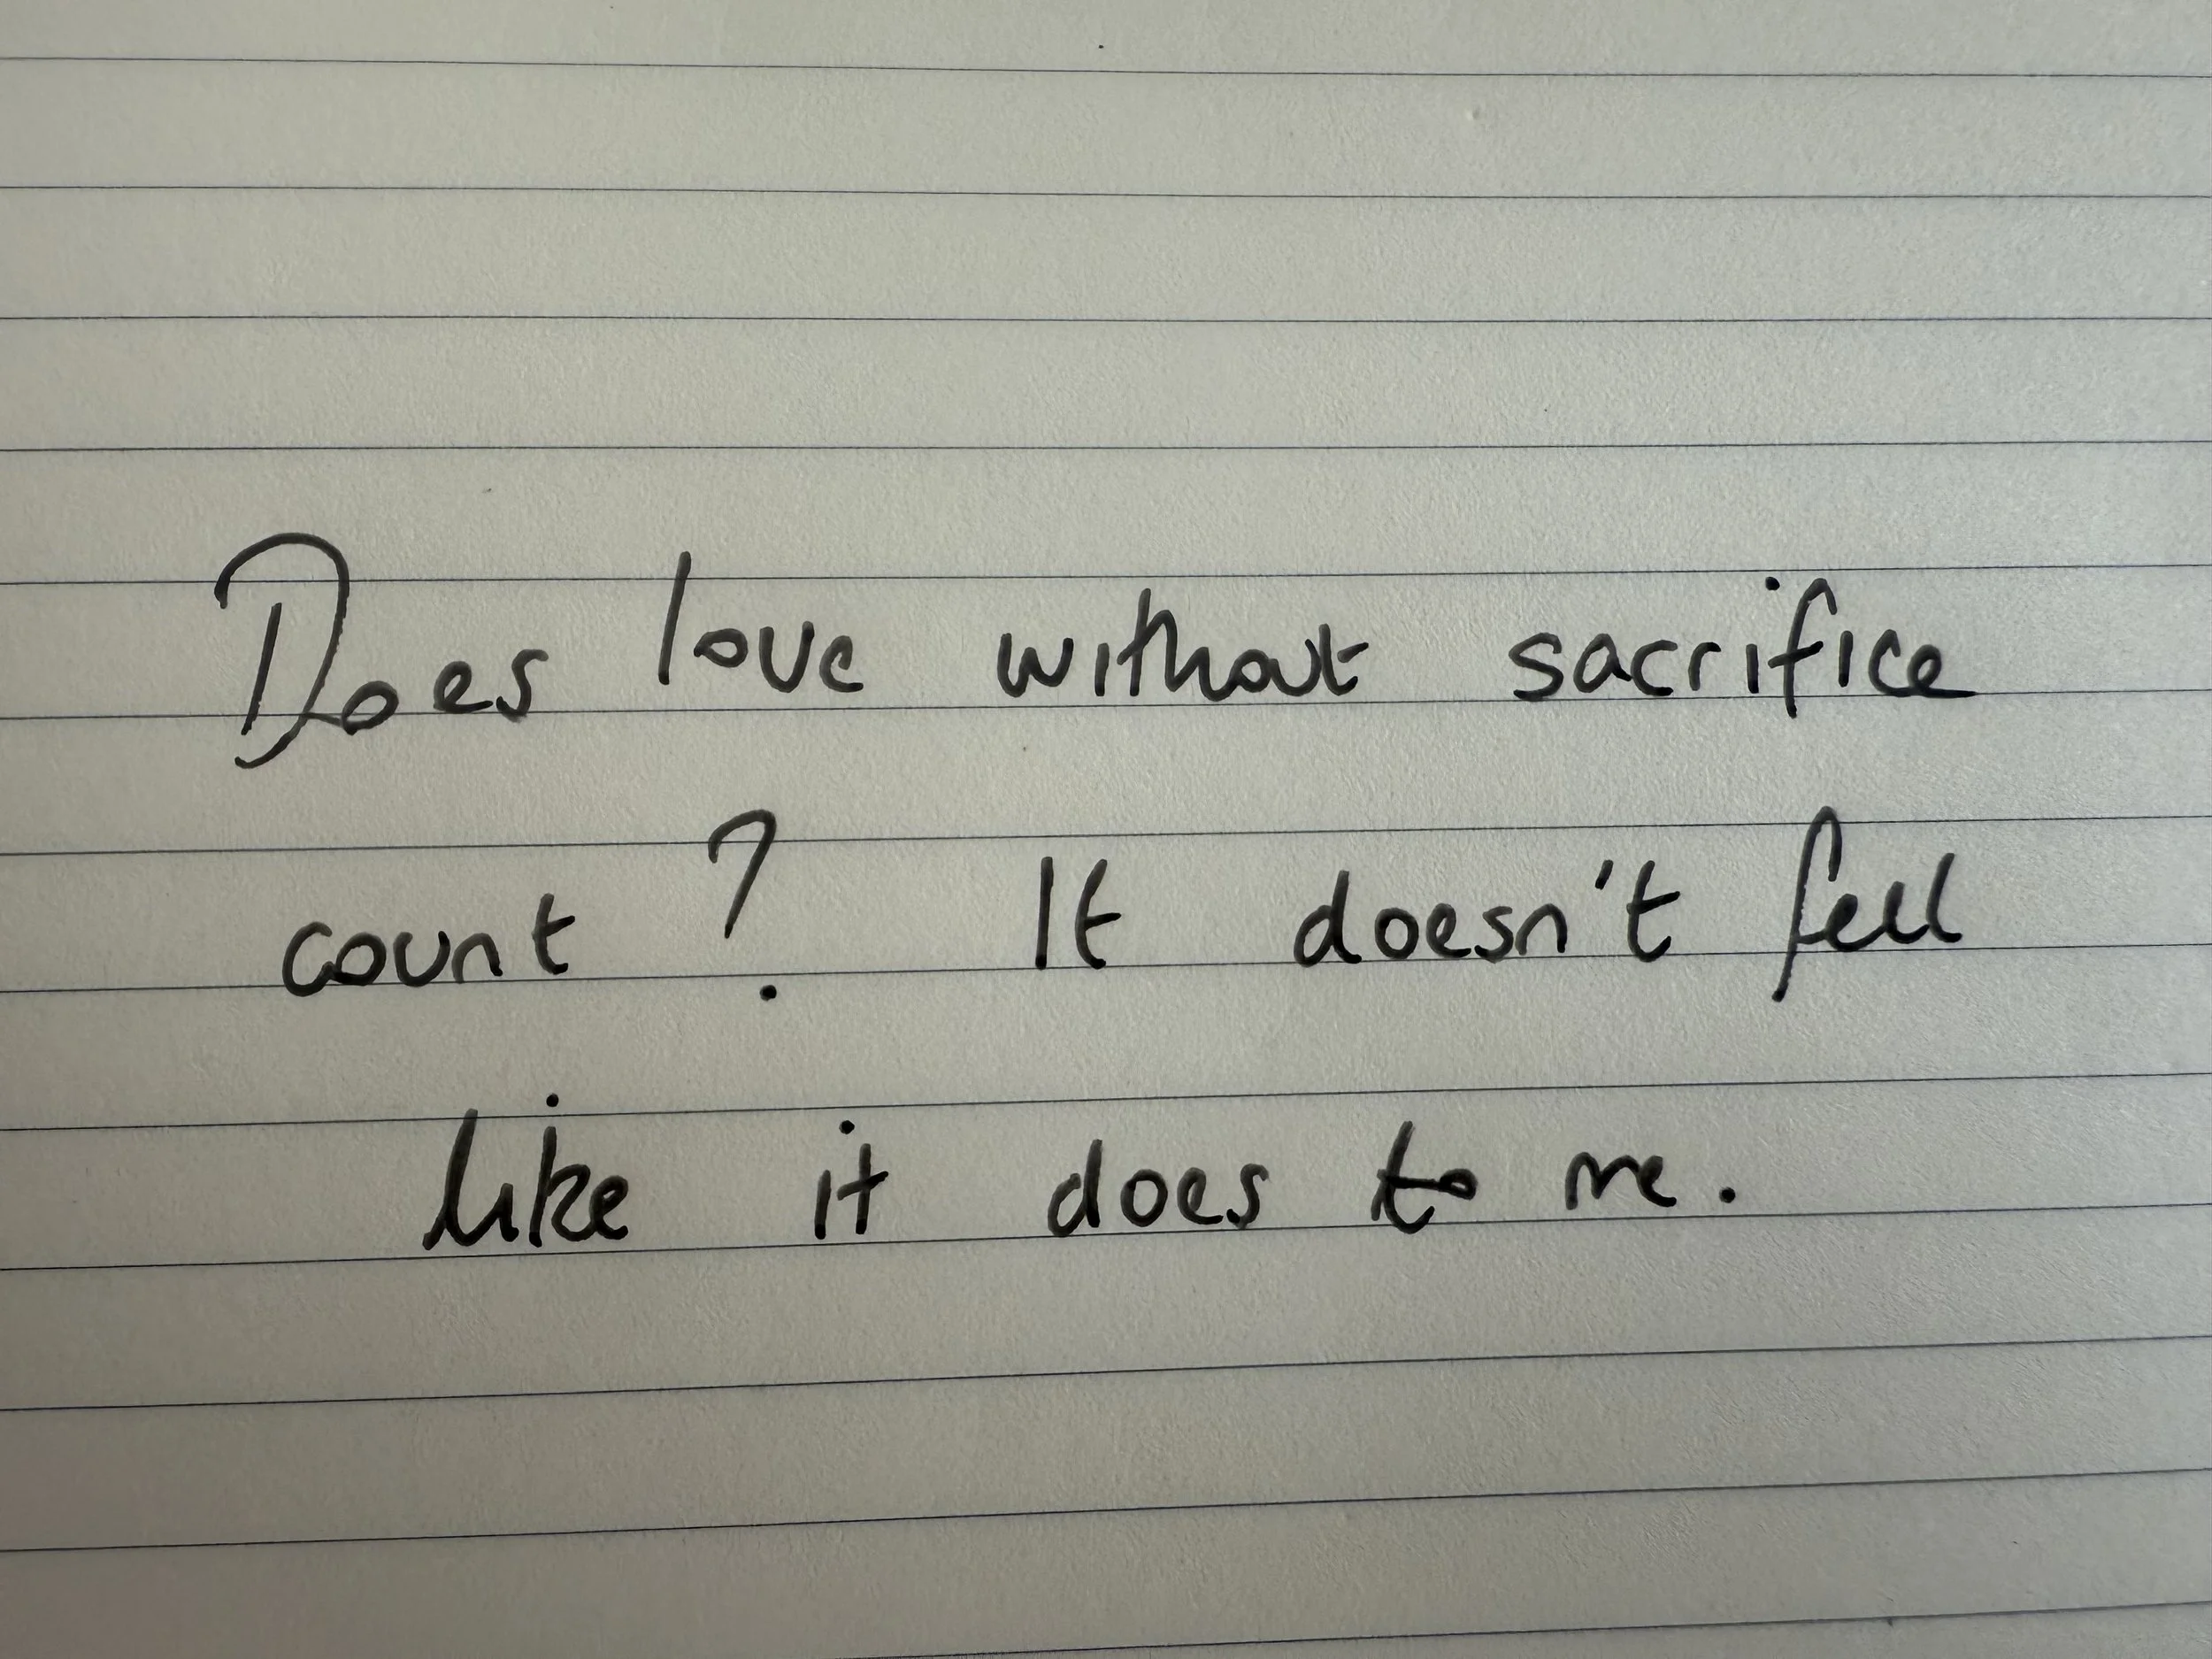 Does love without sacrifice
count? It doesn't feel
like it does to me.